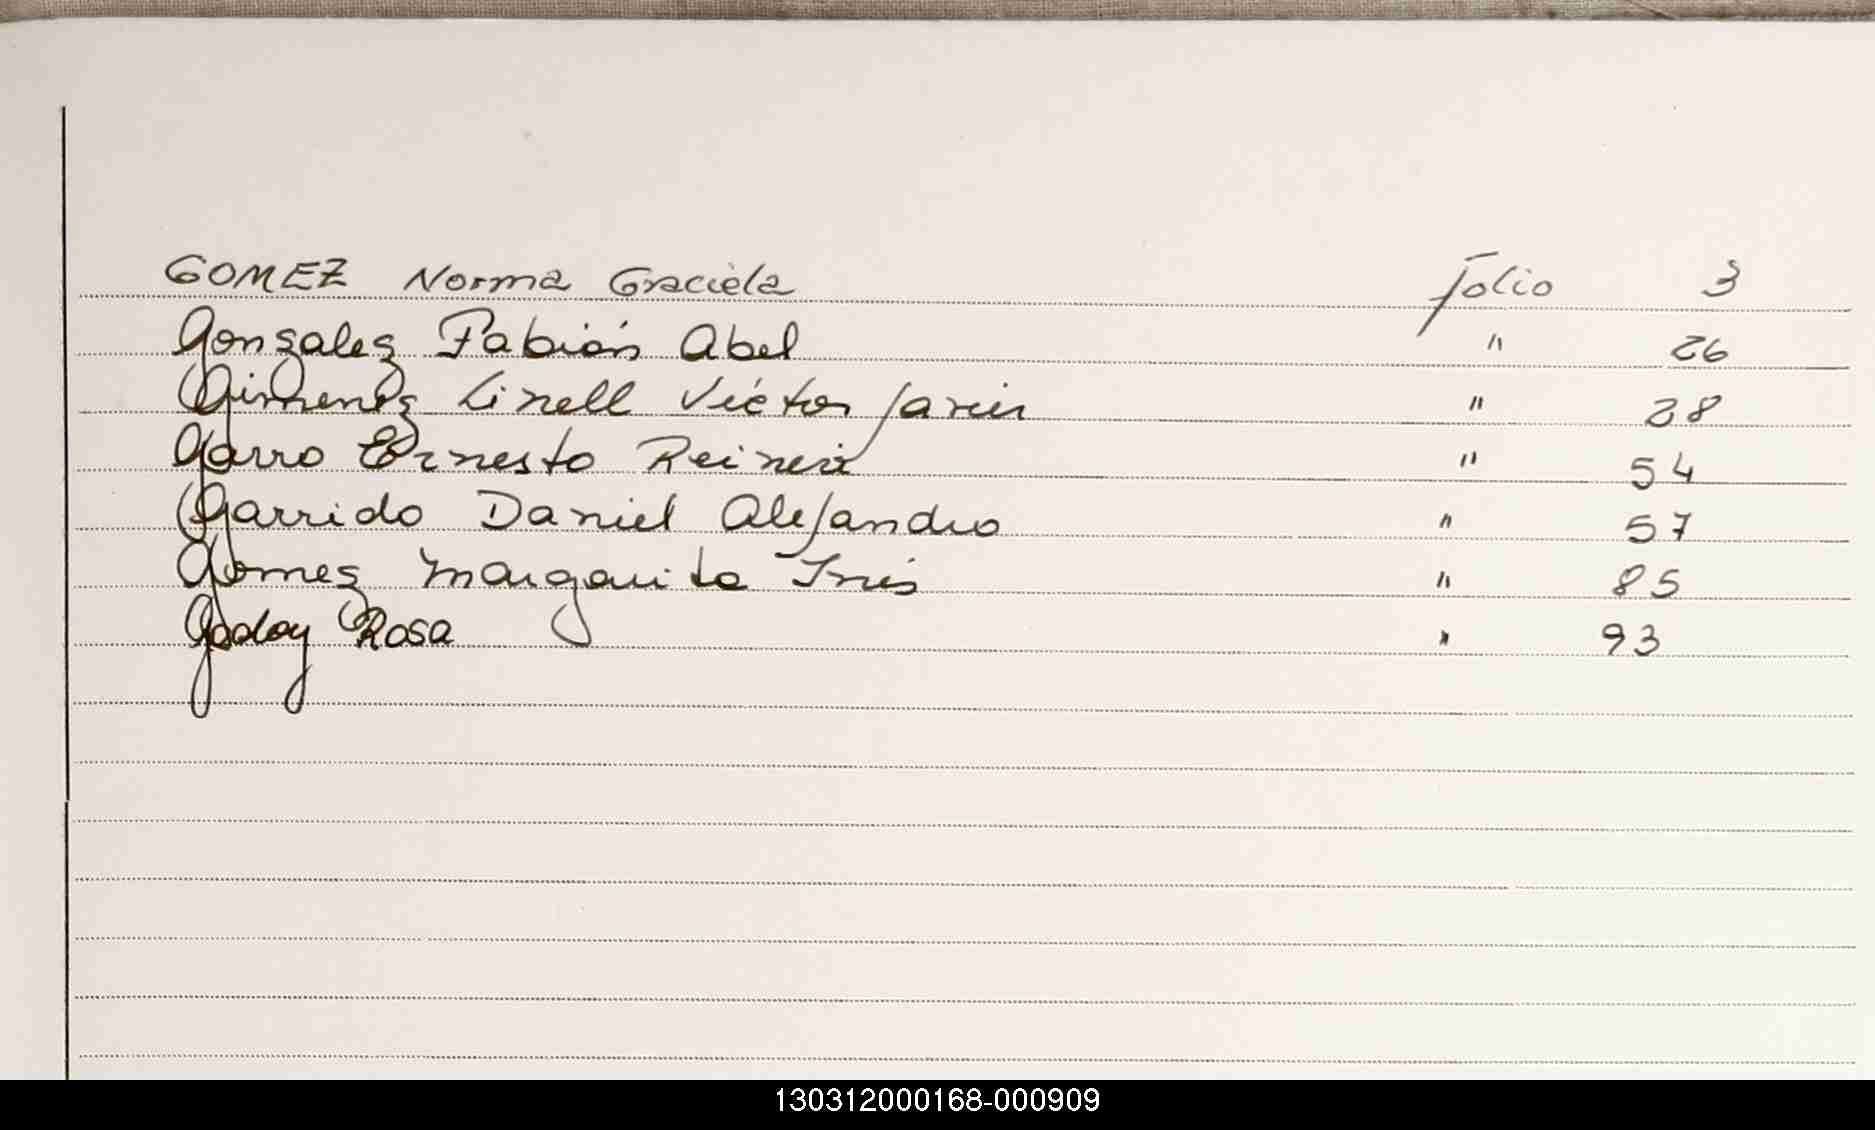 GOMEZ Norma Graciela folio 3
Gonzalez Fabián Abel " 26
Gimenez Linell Victor Javier " 28
Garro Ernesto " 54
Garrido Daniel Alejandro " 57
Gomez Margarita Inés " 85
Godoy Rosa " 93
130312000168-000909